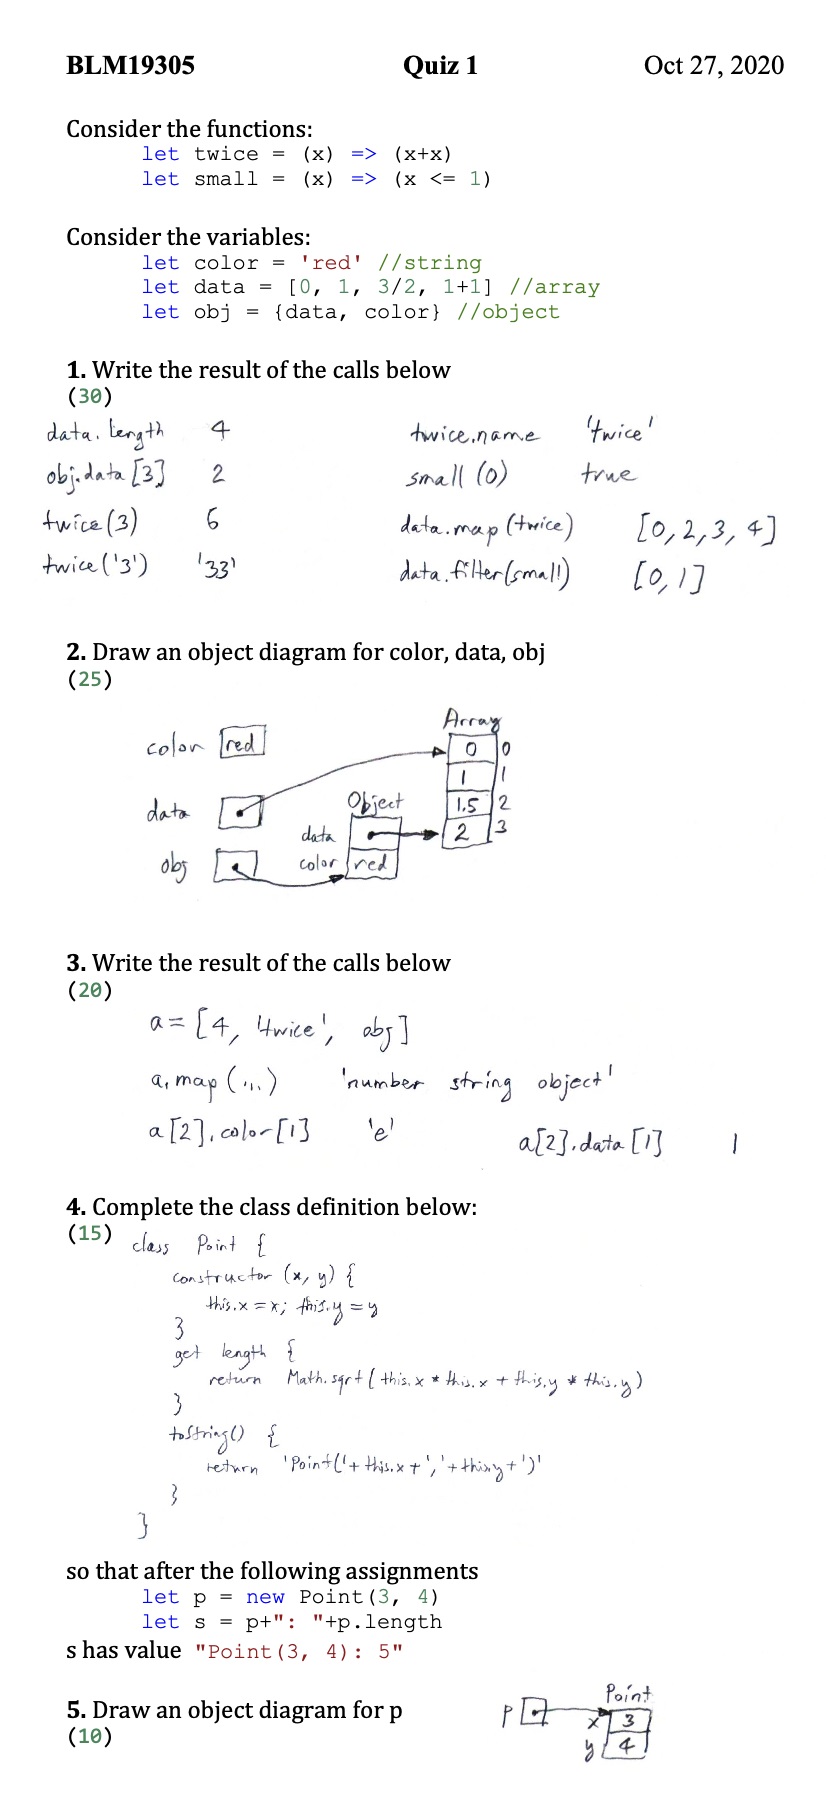 BLM19305 Quiz 1 Oct 27, 2020
Consider the functions:
let twice = (x) => (x+x)
let small = (x) => (x <= 1)
Consider the variables:
let color = 'red' //string
let data = [0, 1, 3/2, 1+1] //array
let obj = {data, color} //object
1. Write the result of the calls below
(30)
data.length 4 twice.name 'twice'
obj.data[3] 2 small(0) true
twice(3) 6 data.map(twice) [0,2,3,4]
twice('3') '33' data.filter(small) [0,1]
2. Draw an object diagram for color, data, obj
(25)
Array
color red 0 0
1 1
data Object 1.5 2
data 2 3
obj color red
3. Write the result of the calls below
(20)
a = [4, 'twice', obj]
a.map(...) 'number string object'
a[2].color[1] 'e' a[2].data[1] 1
4. Complete the class definition below:
(15) class Point {
constructor (x, y) {
this.x = x; this.y = y
}
get length {
return Math.sqrt(this.x * this.x + this.y * this.y)
}
toString() {
return 'Point('+this.x+','+this.y+')'
}
}
so that after the following assignments
let p = new Point(3, 4)
let s = p+": "+p.length
s has value "Point(3, 4): 5"
5. Draw an object diagram for p
(10)
Point
p x 3
y 4